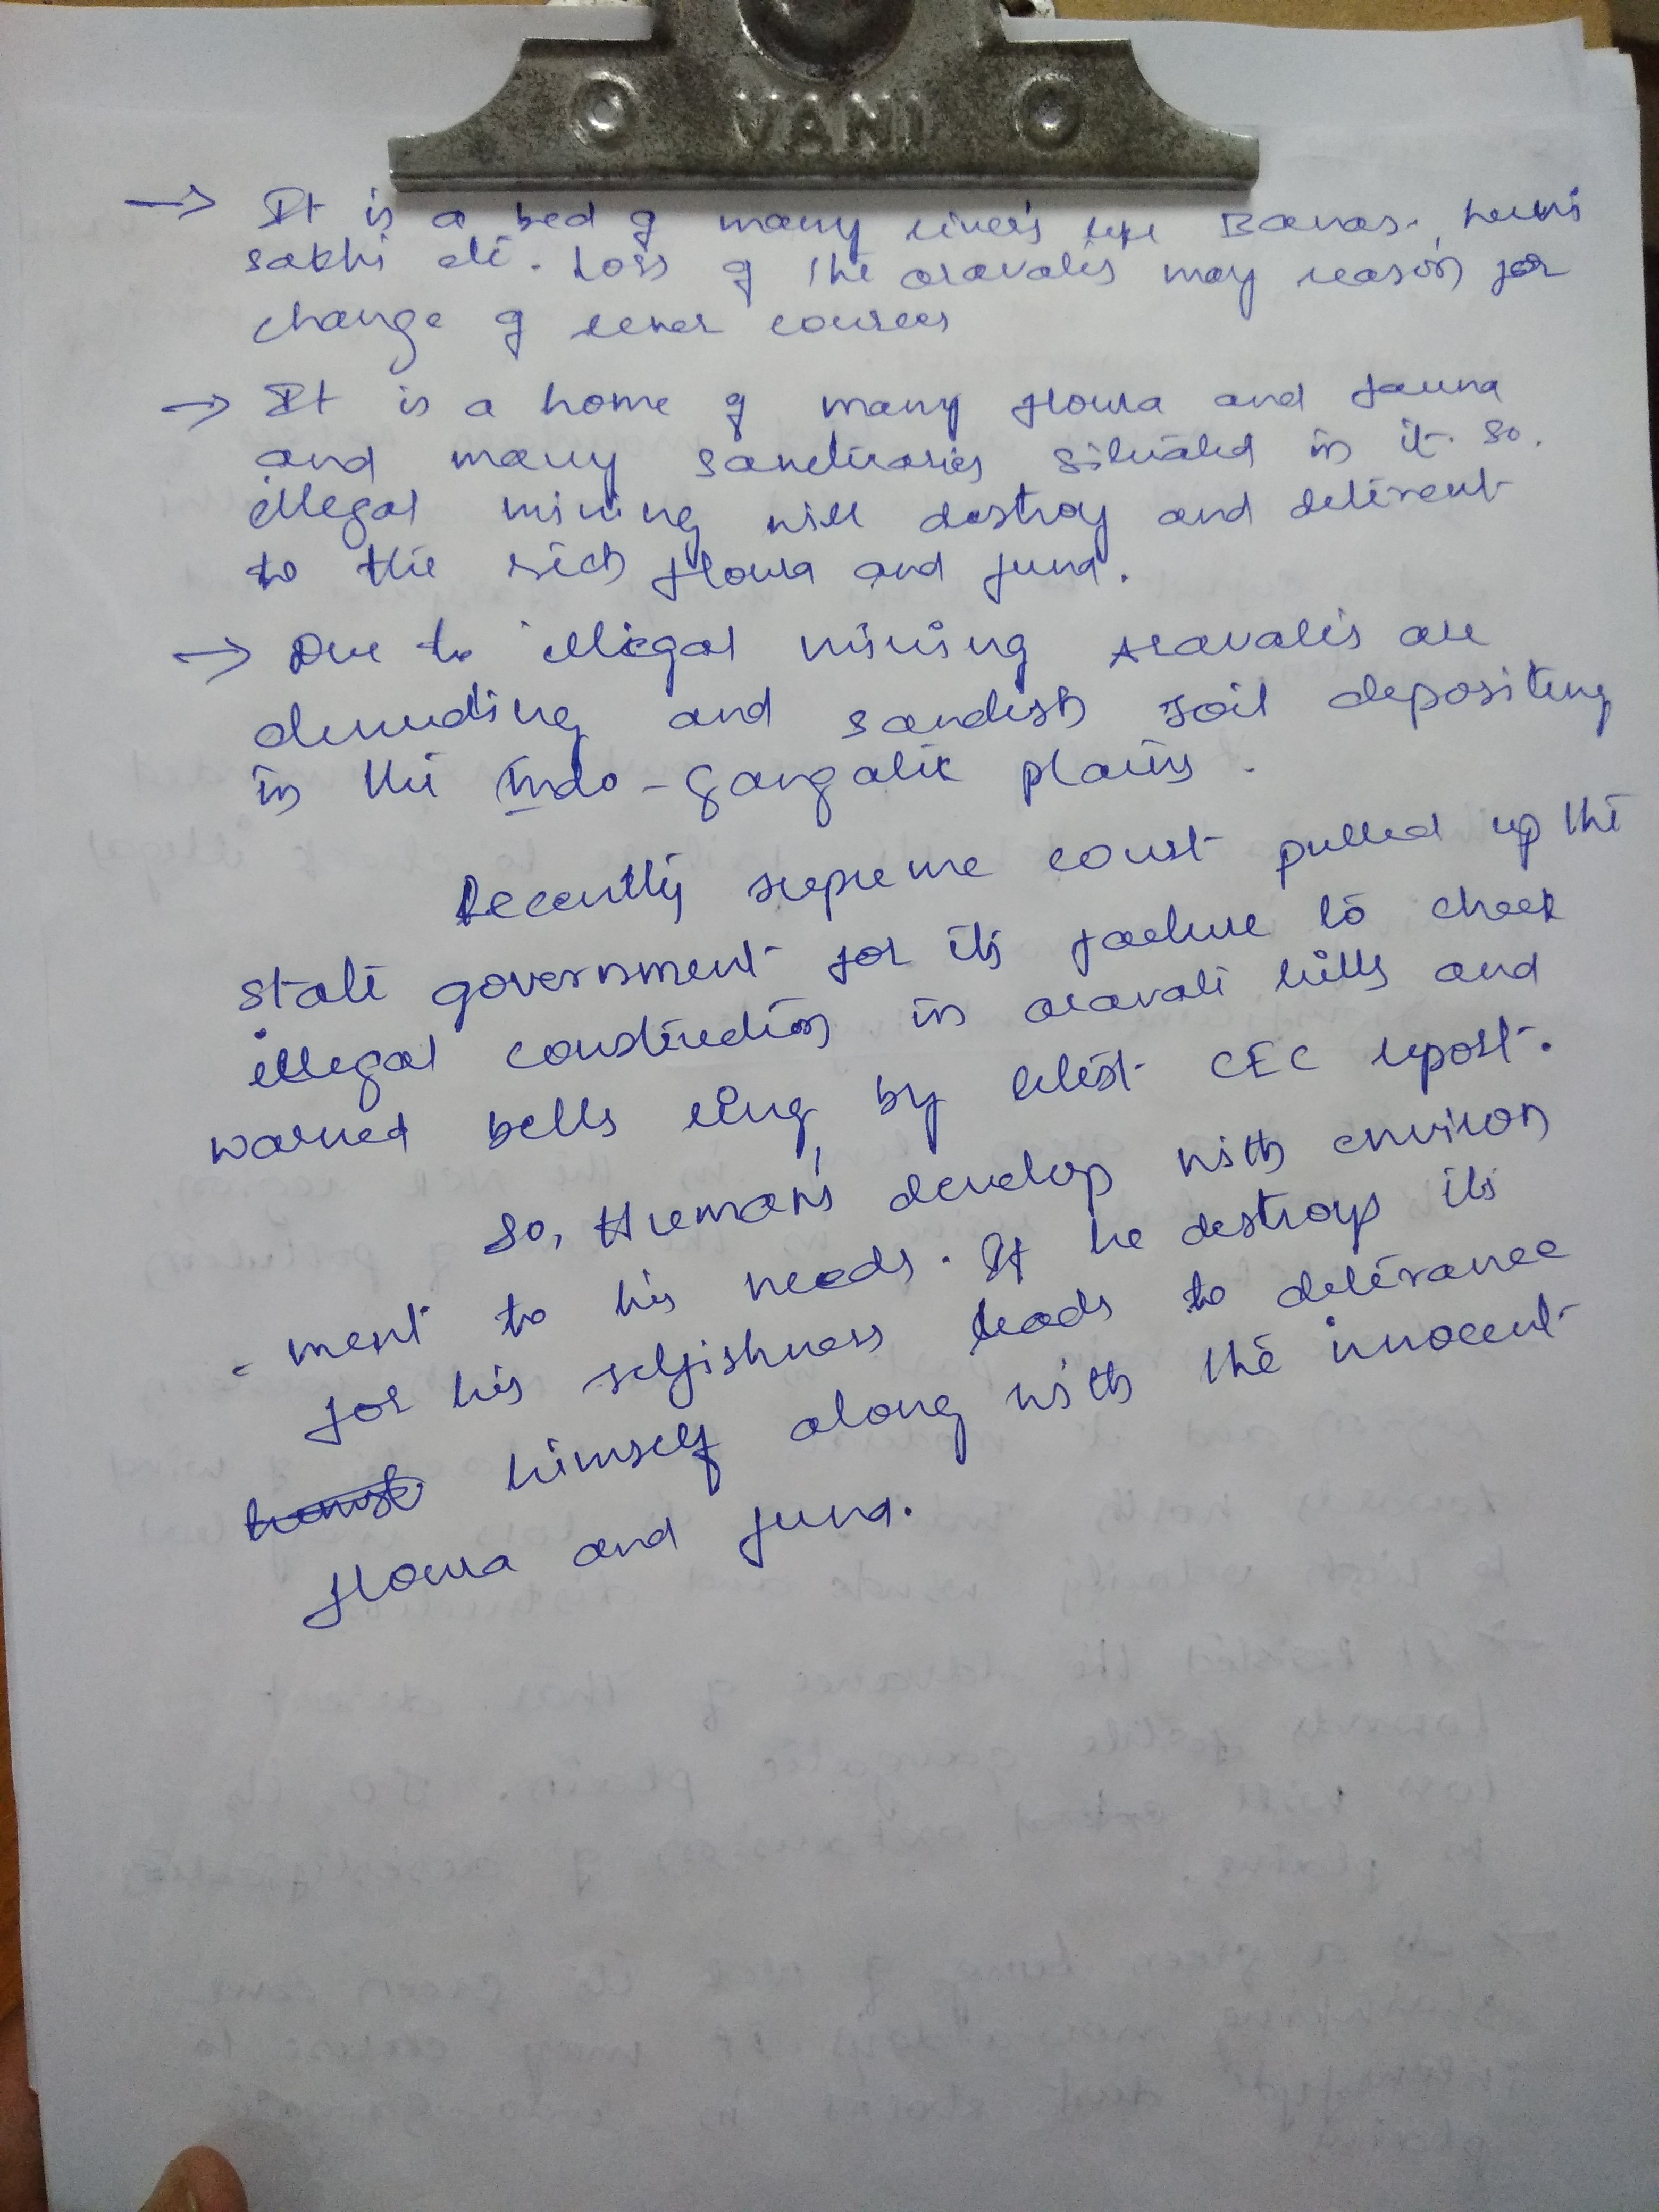 VANI
→ It is a bed of many rivers like Banas, Luni
sakhi etc. Loss of the aravalis may reason for
change of river courses
→ It is a home of many floura and fauna
and many sanctuaries situated in it. so,
illegal mining will destroy and deterent
to the rich floura and funa.
→ Due to illegal mining Aravalis are
denuding and sandish soil depositing
in the Indo-Gangatic plains.
Recently supreme court pulled up the
state government for its failure to check
illegal construction in aravali hills and
warned bells ring by latest CEC report.
So, Human's develop with environ
- ment to his needs. If he destroys its
for his selfishness leads to deterance
himself along with the innocent
floura and funa.